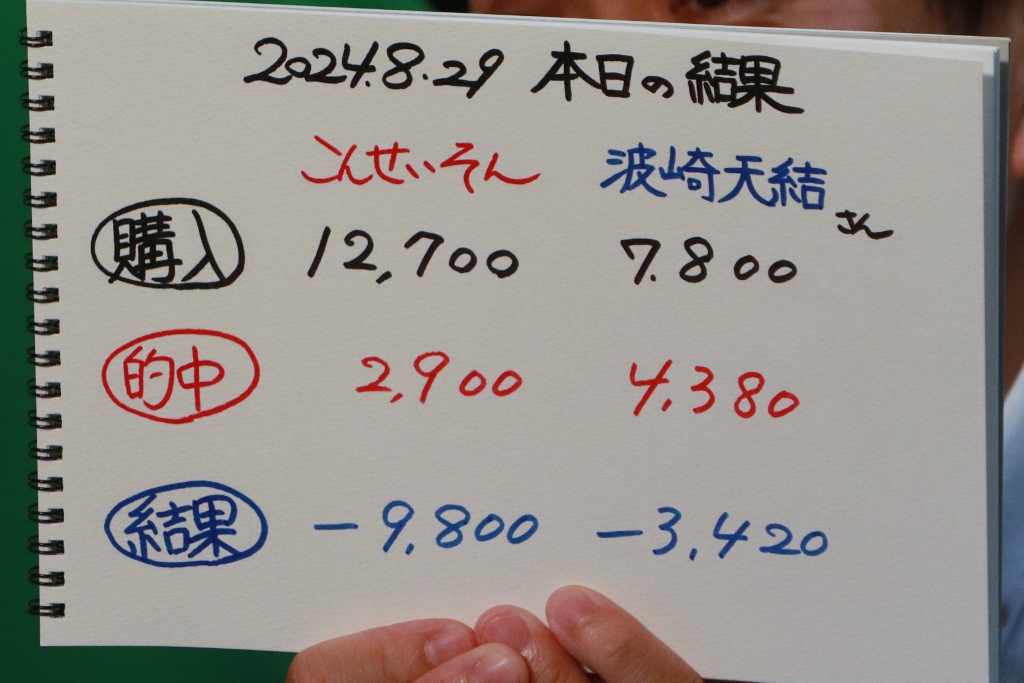 2024.8.29 本日の結果
こんせいそん 波崎天結さん
購入 12,700 7.800
的中 2,900 4,380
結果 -9,800 -3,420